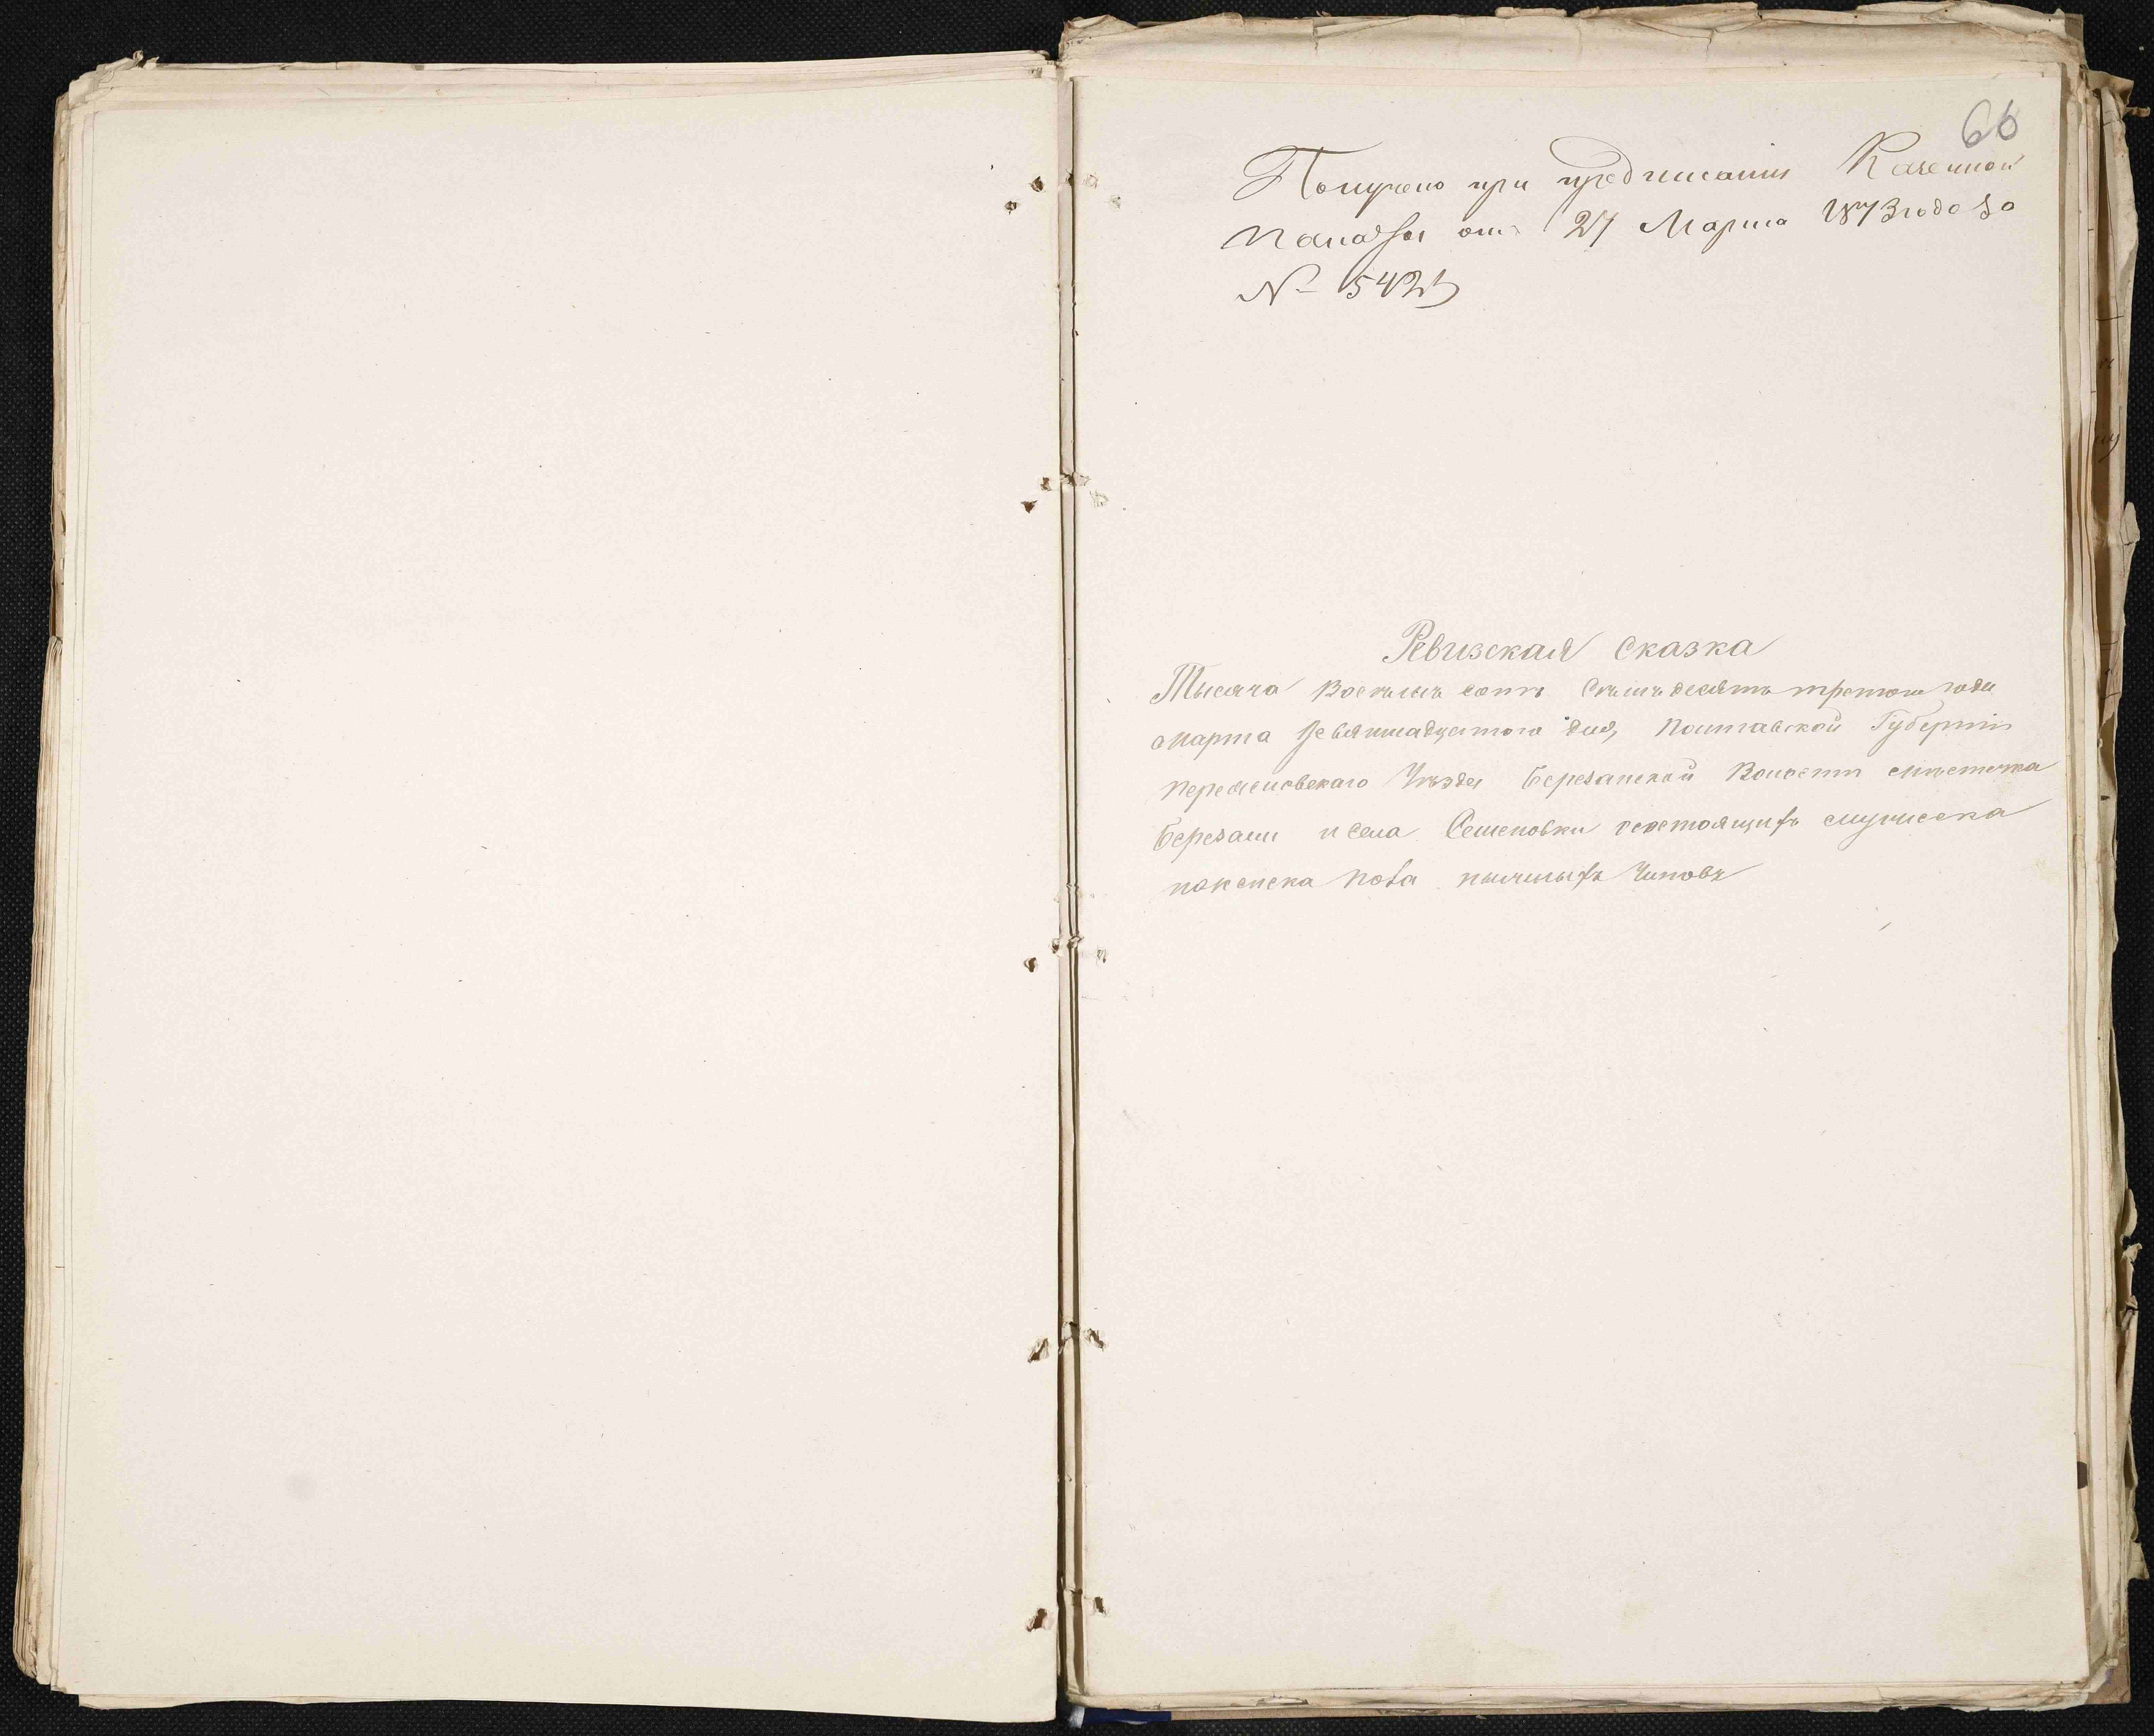 66
Получено при предписании Казенной
Палаты отъ 27 Марта 1873 года за
№ 5423
Ревизская Сказка
Тысяча восемьсотъ Семьдесятъ третьего года
марта девятнадцатого дня, Полтавской Губерніи
переяславскаго Уѣзда Березанской Волости мѣстечка
Березани и села Семеновки о состоящихъ мужеска
и женска пола нижныхъ Чиновъ